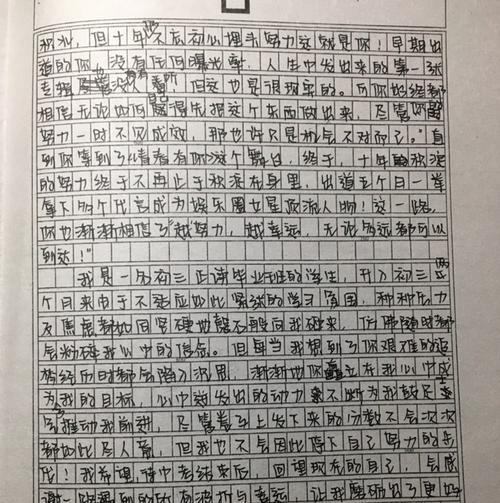 积沙，但十年不忘初心埋头努力这就是你！早期出
道的你，没有任何曝光率，人生中发出来的第一张
专辑尽管没人看所有！但这也是很现实的。可你始终都
相信无论如何自己都得先把这个东西做出来，尽管你的
努力一时不见成效，那也许只是机会不对而已。"直
到你等到了《青春有你》这个舞台，终于，十年的积淀
的努力终于不再止于积淀在身里，出道五个月一举
拿下多个代言成为娱乐圈女星顶流人物！这一路，
你也渐渐相信了"越努力，越幸运，无论多远都可以
到达！"
我是一名初三正读毕业班的学生，升入初三两
个月来由于不适应如此紧张的学习氛围，种种压力
及焦虑都如同坚硬地磐石般向我砸来，仿佛随时都
会粉碎我心中的信念。但每当我想到了你艰难的追
梦经历时都会陷入沉思，渐渐地你矗立在我心中成
为我的目标，心中发出的动力来不断为我鼓足
推动我前进，尽管卷子上发下来的分数不会次次
都如此尽人意，但我也不会因此停下自己努力的步
伐！我希望，待中考结束后，回望现在的自己，会感
谢一路遇到的所有波折与幸运，让我磨砺出了更好